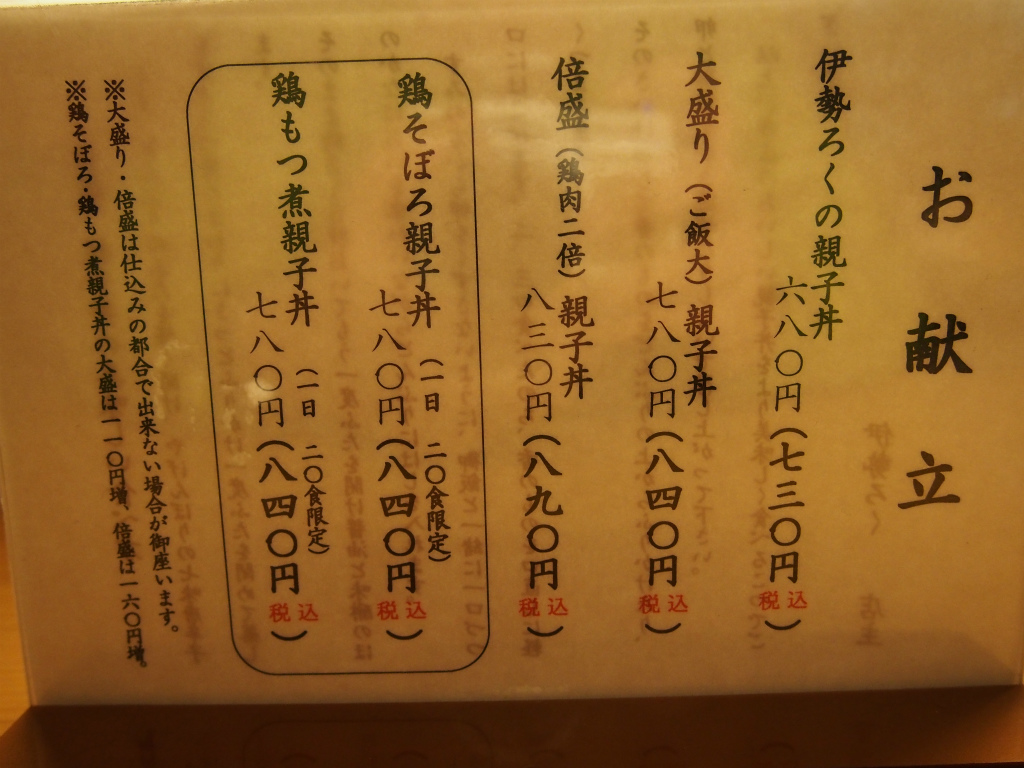 お献立
伊勢ろくの親子丼
六八〇円(七三〇円税込)
大盛り(ご飯大)親子丼
七八〇円(八四〇円税込)
倍盛(鶏肉二倍)親子丼
八三〇円(八九〇円税込)
鶏そぼろ親子丼(一日 二〇食限定)
七八〇円(八四〇円税込)
鶏もつ煮親子丼(一日 二〇食限定)
七八〇円(八四〇円税込)
※大盛り・倍盛は仕込みの都合で出来ない場合が御座います。
※鶏そぼろ・鶏もつ煮親子丼の大盛は一一〇円増、倍盛は一六〇円増。